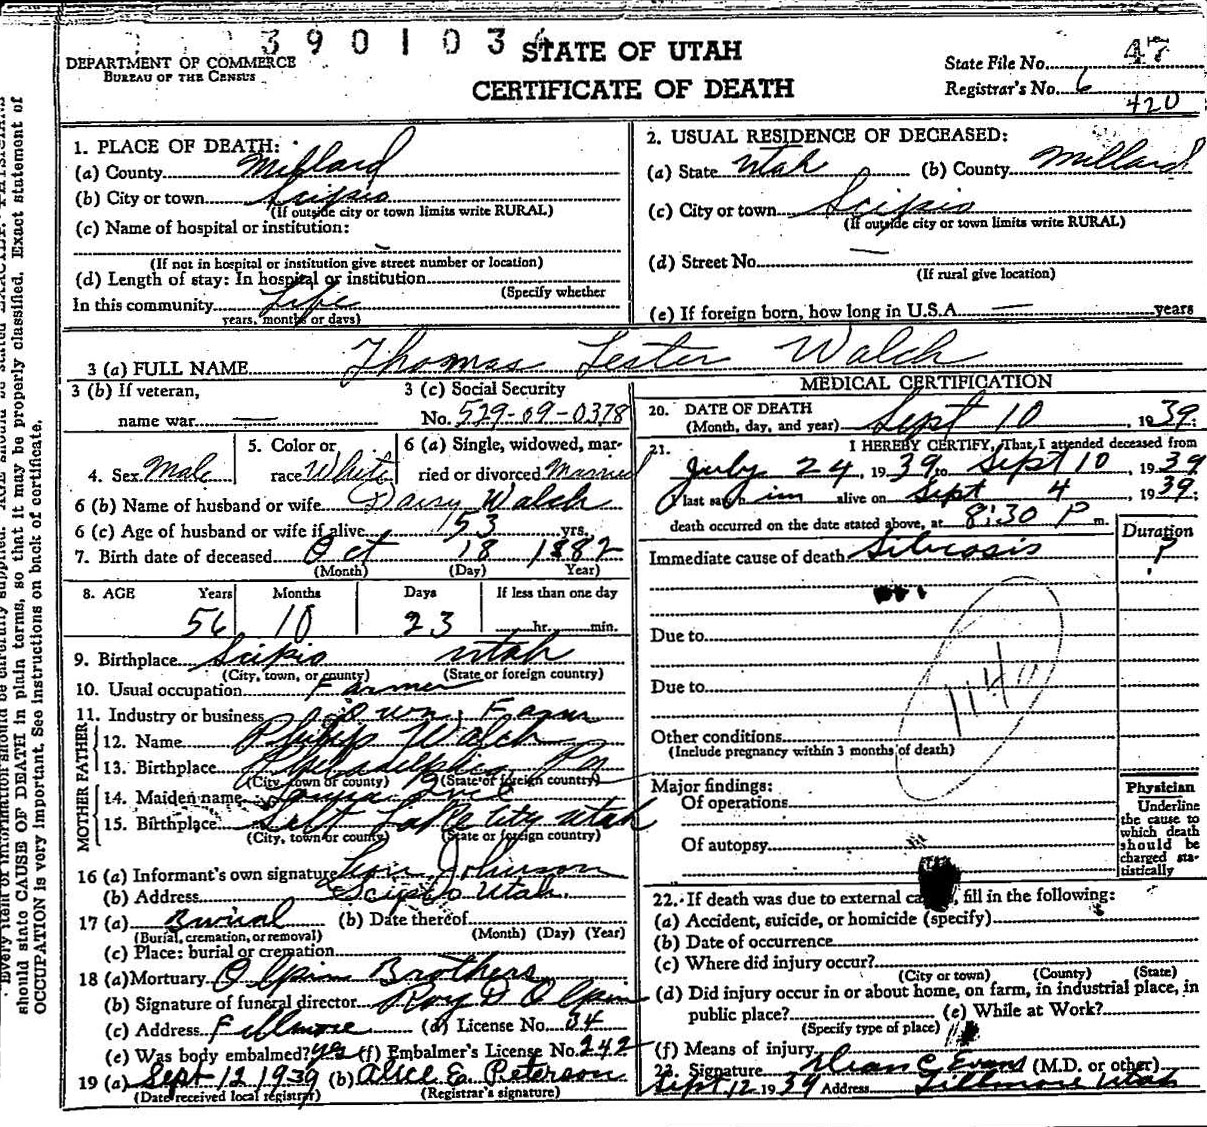 3 9 0 1 0 3
STATE OF UTAH
CERTIFICATE OF DEATH
DEPARTMENT OF COMMERCE
BUREAU OF THE CENSUS
State File No. 47
Registrar's No. 6
420
1. PLACE OF DEATH:
(a) County Millard
(b) City or town Scipio
(If outside city or town limits write RURAL)
(c) Name of hospital or institution:
(If not in hospital or institution give street number or location)
(d) Length of stay: In hospital or institution
(Specify whether
In this community Life
years, months or days)
2. USUAL RESIDENCE OF DECEASED:
(a) State Utah (b) County Millard
(c) City or town Scipio
(If outside city or town limits write RURAL)
(d) Street No. —
(If rural give location)
(e) If foreign born, how long in U.S.A. — years
3 (a) FULL NAME Thomas Lester Walch
3 (b) If veteran,
name war
3 (c) Social Security
No. 529-09-0378
4. Sex Male
5. Color or
race White
6 (a) Single, widowed, mar-
ried or divorced Married
6 (b) Name of husband or wife Daisy Walch
6 (c) Age of husband or wife if alive 53 yrs.
7. Birth date of deceased Oct 18 1882
(Month) (Day) Year)
8. AGE Years Months Days If less than one day
56 10 23 hr. min.
9. Birthplace Scipio Utah
(City, town, or county) (State or foreign country)
10. Usual occupation Farmer
11. Industry or business Own Farm
FATHER
12. Name Philip Walch
13. Birthplace Philadelphia Pa
(City, town or county) (State or foreign country)
MOTHER
14. Maiden name
15. Birthplace Salt Lake City Utah
(City, town or county) (State or foreign country)
16 (a) Informant's own signature Johnson
(b) Address Scipio Utah.
17 (a) Burial (b) Date thereof
(Burial, cremation, or removal) (Month) (Day) (Year)
(c) Place: burial or cremation
18 (a) Mortuary Olpin Brothers
(b) Signature of funeral director Roy D Olpin
(c) Address Fillmore (d) License No. 34
(e) Was body embalmed? yes (f) Embalmer's License No. 242
19 (a) Sept 12 1939 (b) Alice Ea. Peterson
(Date received local registrar) (Registrar's signature)
MEDICAL CERTIFICATION
20. DATE OF DEATH
(Month, day, and year) Sept 10, 1939.
21. I HEREBY CERTIFY, That I attended deceased from
July 24, 1939 to Sept 10, 1939
I last saw him alive on Sept 4, 1939.
death occurred on the date stated above, at 8:30 P m.
Duration
Immediate cause of death Silicosis ?
Due to
Due to
114
Other conditions
(Include pregnancy within 3 months of death)
Major findings:
Of operations
Of autopsy
Physician
Underline
the cause to
which death
should be
charged sta-
tistically
22. If death was due to external , fill in the following:
(a) Accident, suicide, or homicide (specify)
(b) Date of occurrence
(c) Where did injury occur?
(City or town) (County) (State)
(d) Did injury occur in or about home, on farm, in industrial place, in
public place? (e) While at Work?
(Specify type of place)
(f) Means of injury
23. Signature Dean C Evans (M.D. or other)
Sept 12 1939 Address Fillmore Utah
should state CAUSE OF DEATH in plain terms, so that it may be properly classified. Exact statement of
OCCUPATION is very important. See instructions on back of certificate.